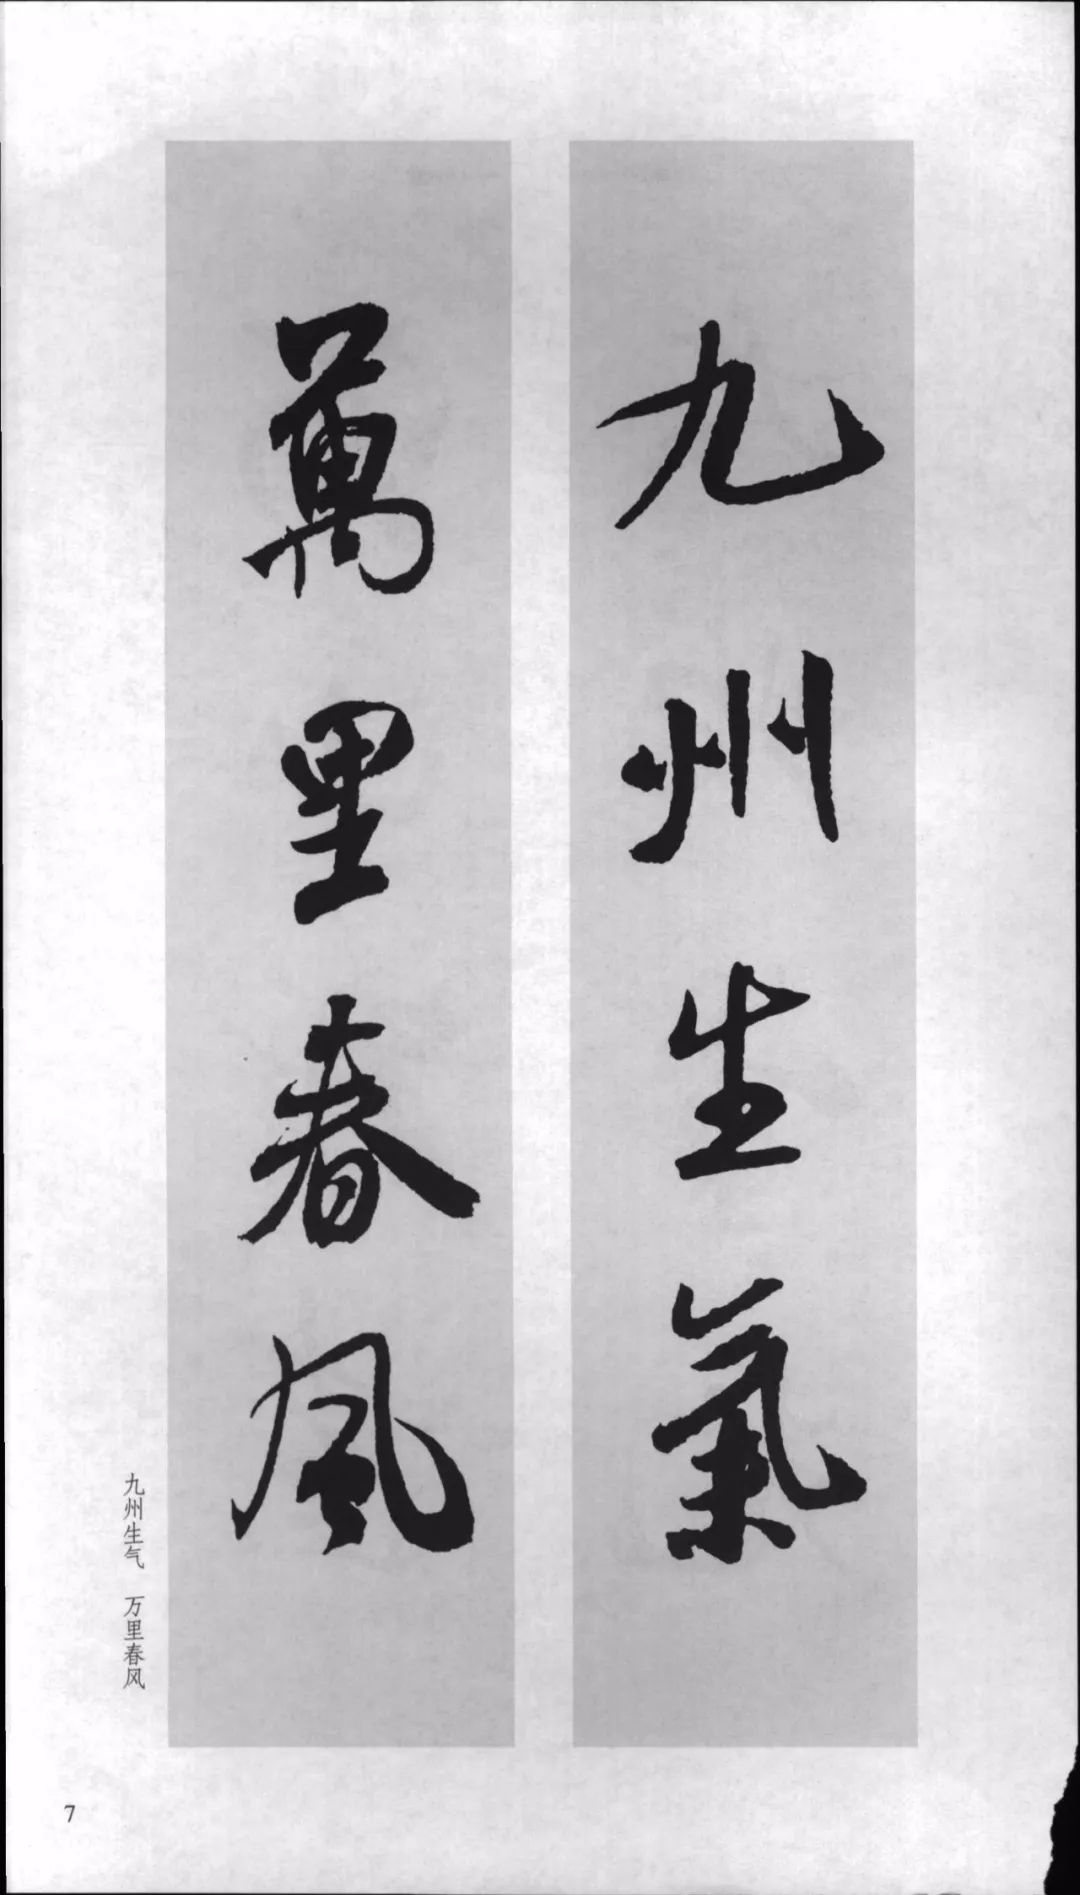 九州生氣
萬里春風
九州生气 万里春风
7